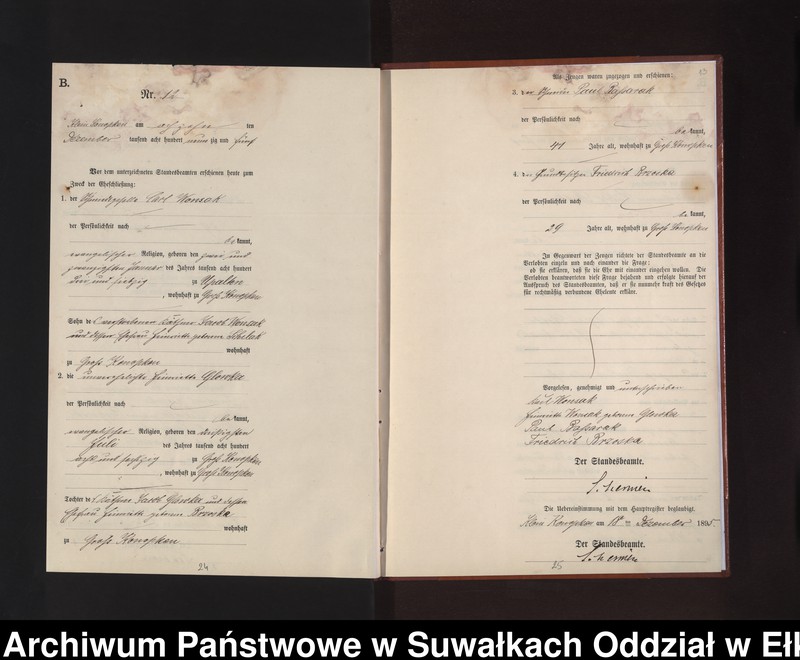 B.
Nr. 12
Klein Konopken am achtzehn ten
Dezember tausend acht hundert neun zig und fünf
Vor dem unterzeichneten Standesbeamten erschienen heute zum
Zweck der Eheschließung:
1. der Carl Wonsak
der Persönlichkeit nach
be kannt,
evangelischer Religion, geboren den zwei und
zwanzigsten Januar des Jahres tausend acht hundert
drei und siebzig zu Upalten
, wohnhaft zu Groß Konopken
Sohn des verstorbenen Käthner Jacob Wonsak
und dessen Ehefrau Henriette geborene
wohnhaft
zu Groß Konopken
2. die unverehelichte Henriette Glowka
der Persönlichkeit nach
be kannt,
evangelischer Religion, geboren den dreißigsten
Juli des Jahres tausend acht hundert
acht und sechzig zu Groß Konopken
, wohnhaft zu Groß Konopken
Tochter des Käthner Jacob Glowka und dessen
Ehefrau Henriette geborene Brzoska
wohnhaft
zu Groß Konopken
24
Als Zeugen waren zugezogen und erschienen:
3. der Paul Bassarak
der Persönlichkeit nach
be kannt,
41 Jahre alt, wohnhaft zu Groß Konopken
4. der Grundbesitzer Friedrich Brzoska
der Persönlichkeit nach
be kannt,
29 Jahre alt, wohnhaft zu Groß Konopken
In Gegenwart der Zeugen richtete der Standesbeamte an die
Verlobten einzeln und nach einander die Frage:
ob sie erklären, daß sie die Ehe mit einander eingehen wollen. Die
Verlobten beantworteten diese Frage bejahend und erfolgte hierauf der
Ausspruch des Standesbeamten, daß er sie nunmehr kraft des Gesetzes
für rechtmäßig verbundene Eheleute erkläre.
Vorgelesen, genehmigt und unterschrieben
Karl Wonsak
Henriette Wonsak geborene Glowka
Paul Bassarak
Friedrich Brzoska
Der Standesbeamte.
Die Uebereinstimmung mit dem Hauptregister beglaubigt.
Klein Konopken am 18 ten Dezember 1895
Der Standesbeamte.
25
Archiwum Państwowe w Suwałkach Oddział w Ełk